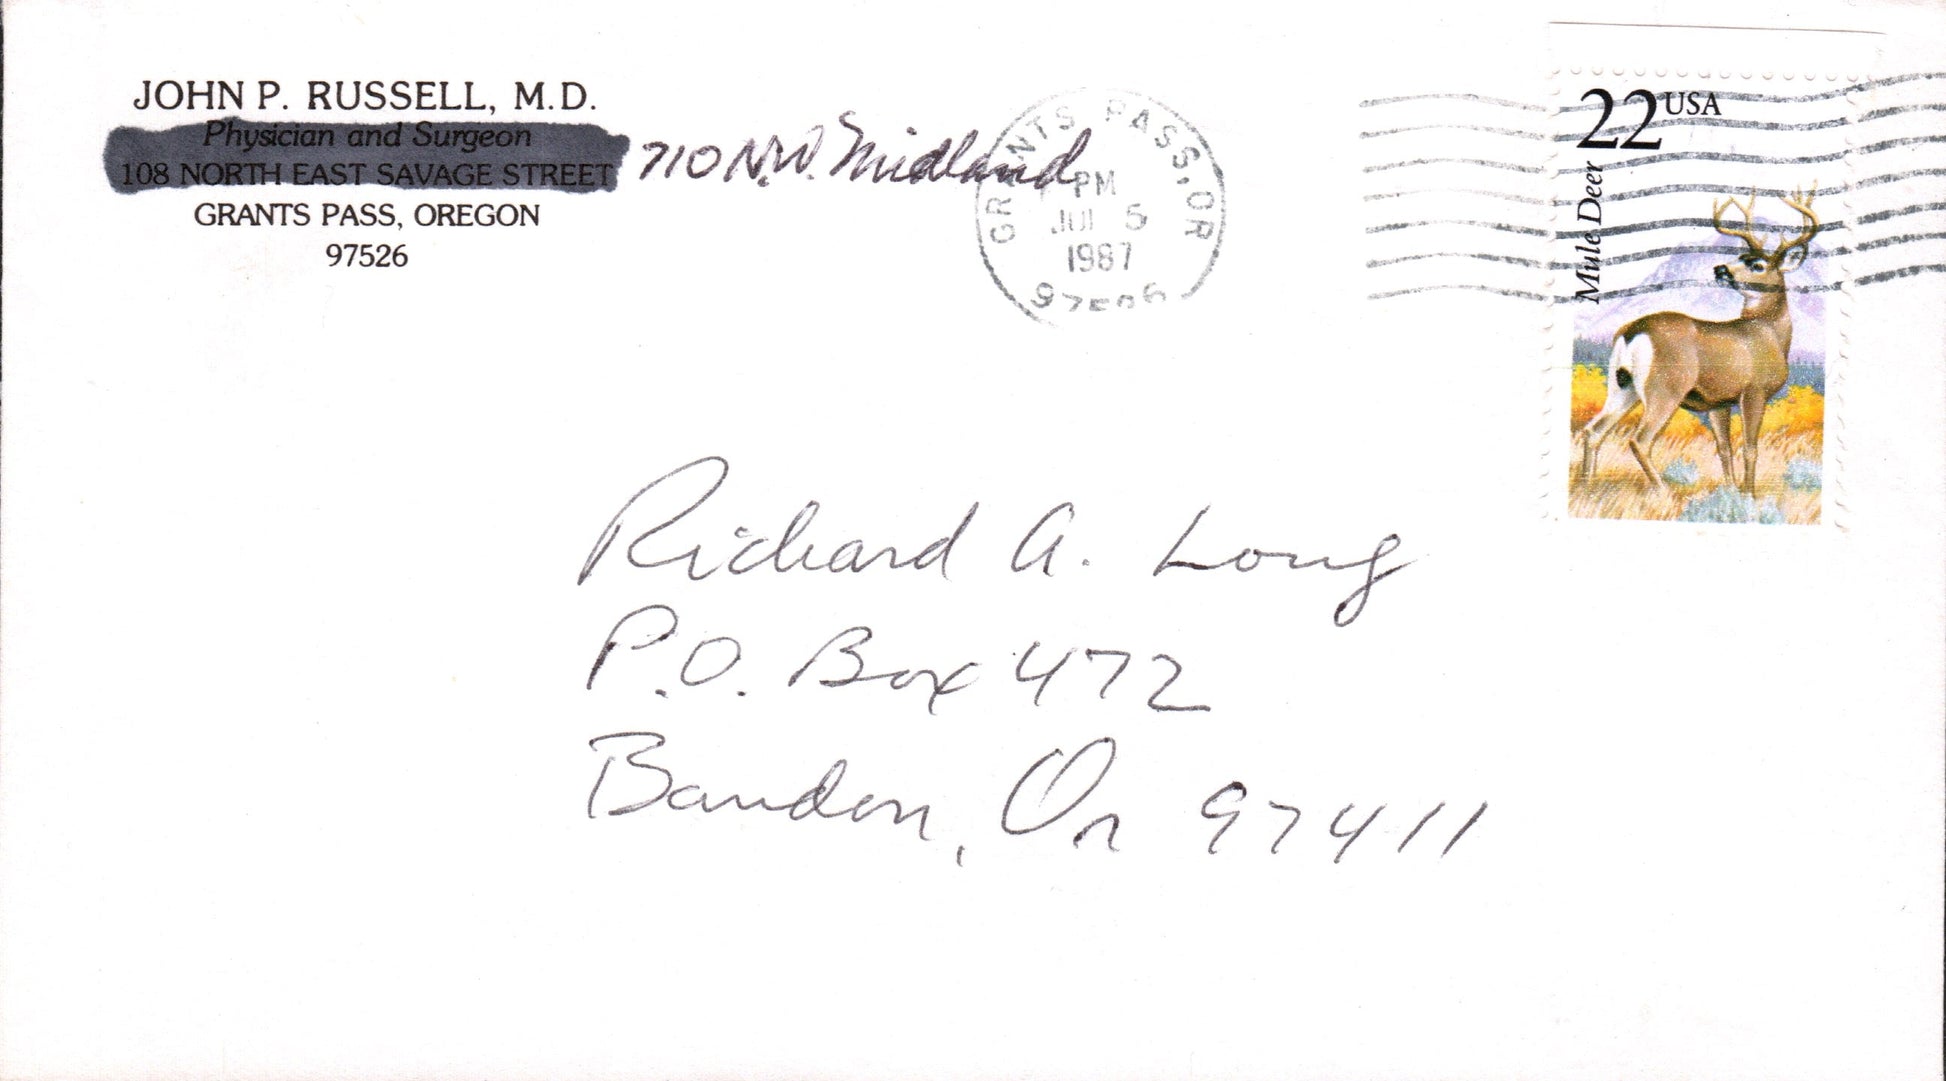 JOHN P. RUSSELL, M.D.
Physician and Surgeon
108 NORTH EAST SAVAGE STREET
710 N.W. Midland
GRANTS PASS, OREGON
97526
GRANTS PASS, OR
PM
5
1987
97526
22 USA
Mule Deer
Richard A. Long
P.O. Box 472
Bandon, Or 97411